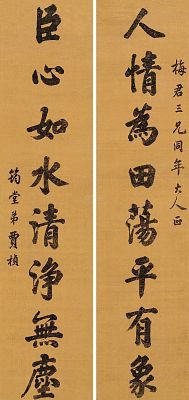 梅君三兄同年大人正
人情為田蕩平有象
臣心如水清淨無塵
筠堂弟賈楨